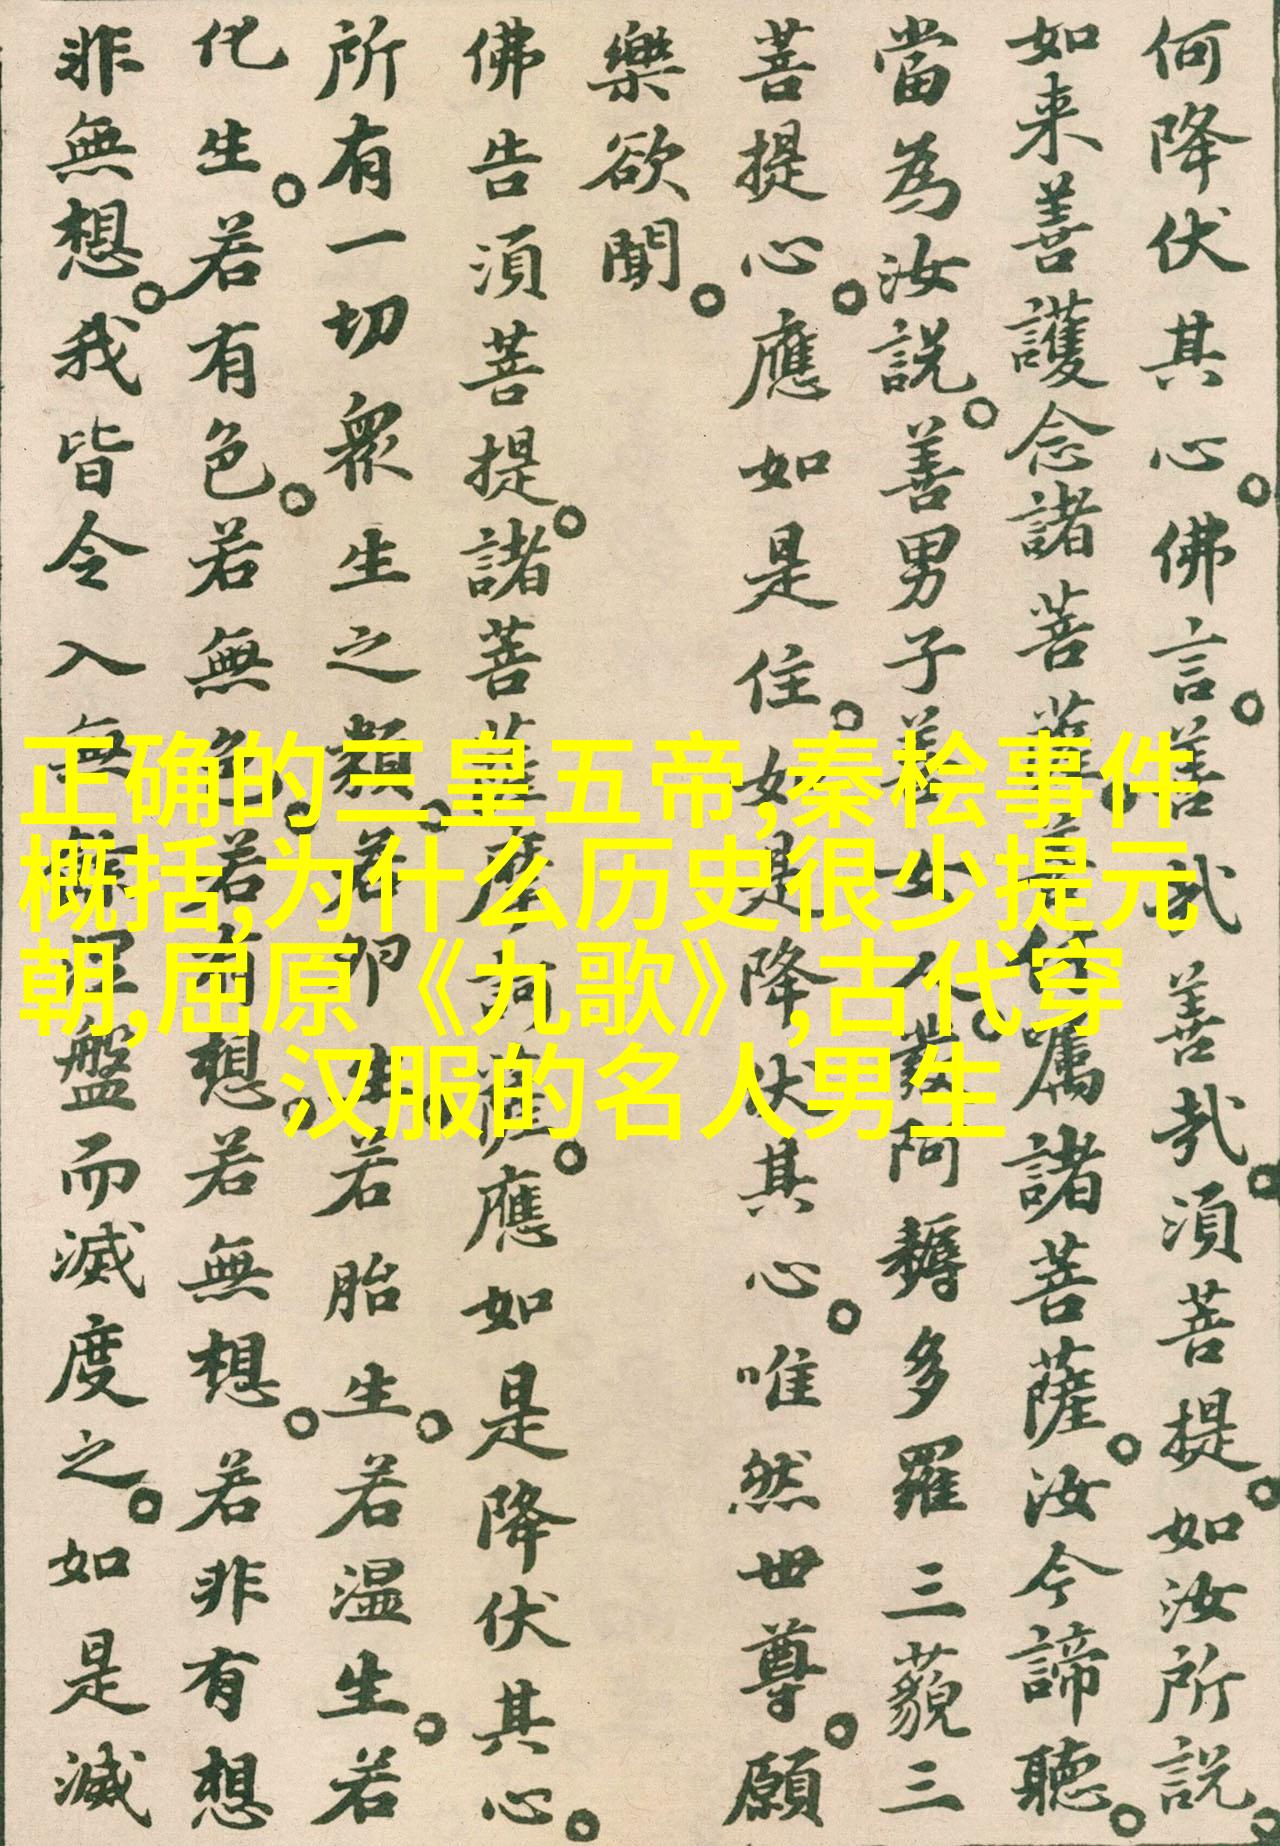 何降伏其心。佛言。善哉善哉。須菩提。如汝所說。
如来善護念諸菩薩。善付囑諸菩薩。汝今諦聽。
當為汝說。善男子善女人。發阿耨多羅三藐三
菩提心。應如是住。如是降伏其心。唯然世尊。願
樂欲聞。
佛告須菩提。諸菩薩摩訶薩。應如是降伏其心。
所有一切衆生之類。若卵生。若胎生。若温生。若
化生。若有色。若無色。若有想。若無想。若非有想
非無想。我皆令入無餘涅盤而滅度之。如是滅
正确的三皇五帝,秦桧事件
概括,为什么历史很少提元
朝,屈原《九歌》,古代穿
汉服的名人男生